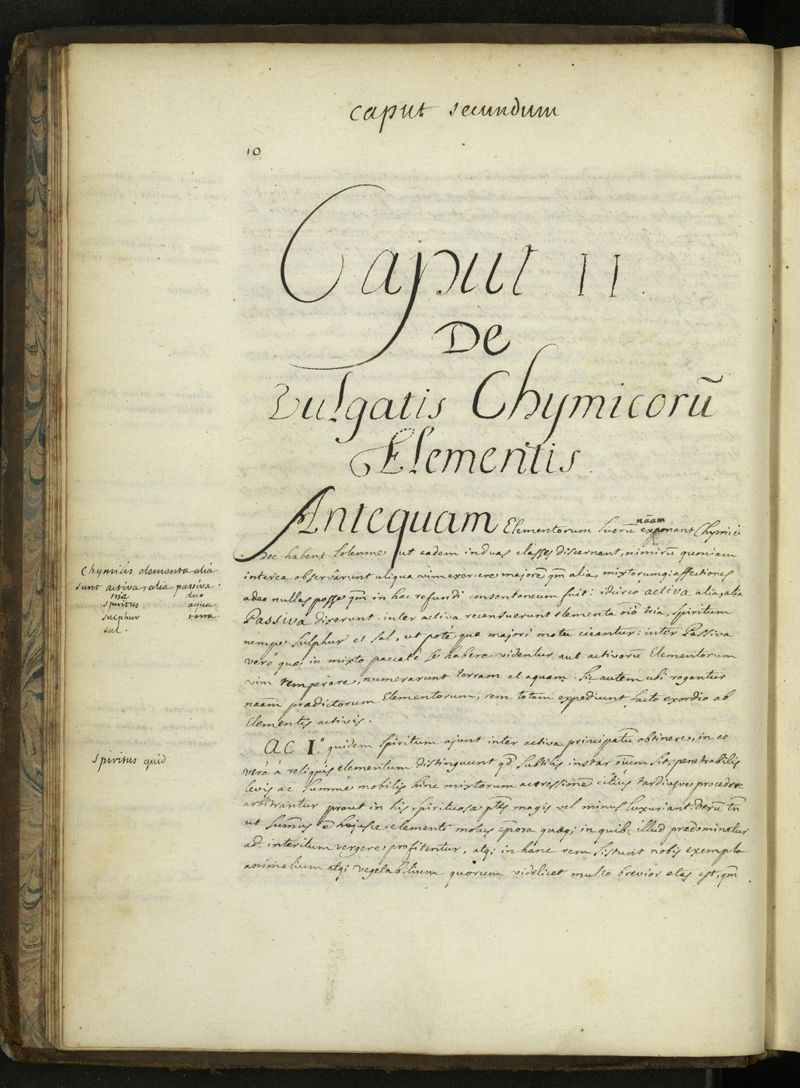 caput secundum
10
Caput II
De
Vulgatis Chymicorū
Elementis
Antequam Elementorum suorū nãam exponant Chymici
hoc habent solenne, ut eadem in duas classes discernant, nimirū quoniam
interea observârunt aliqua vim exercere majorē qm̄ alia, mixtorumq; affectiones
adeo nullas posse qm̄ in hæc refundi consentaneum fuit: idcirco activa alia, alia
Passiva dixerunt. inter activa recensuerunt elementa oīo tria, spiritum
nempe sulphur et sal, ut poté quæ majori motu cieantur: inter Passiva
verò quæ in mixto pacaté se habere videntur aut activorū Elementorum
vim temperare, numerarunt terram et aquam. Sic autem ubi rogantur
naãm prædictorum Elementorum, rem totam expediunt facto exordio ab
Elementis activis.
Ac I.º quidem spiritum ajunt inter activa principatū obtinere, in eo
verò à reliquis elementum distinguunt qd subtilis instar sit, penetrabilis
levis ac summé mobilis hinc mixtorum accressionē citiùs tardiusve procedere
arbitrantur prout in his spirituosæ ptes magis vel minus luxuriant. verū tn̄
ut summus ē hujusce elementi motus cpora quæq; in quib; illud prædominatur
ad interitum vergere profitentur, atq; in hanc rem sistunt nobis exempla
animalium atq; vegetabilium quorum videlicet multo brevior ætas est, qm̄
Chymicis elementa alia
sunt activa, alia passiva.
tria duo
spiritus aqua
sulphur terra
sal.
Spiritus quid